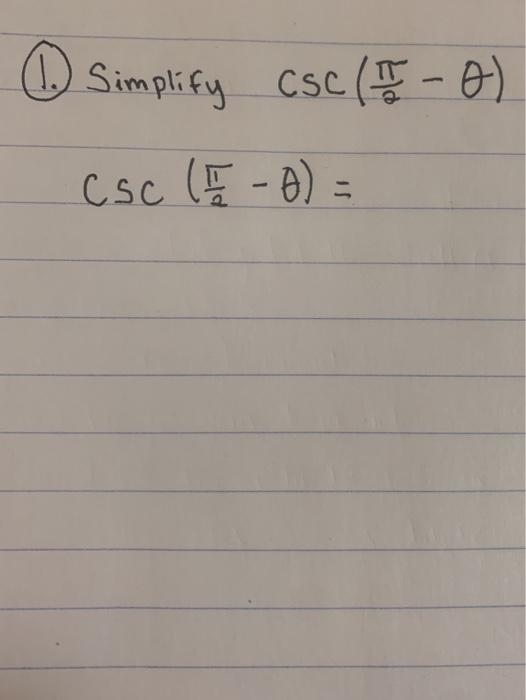 1. Simplify csc(π/2 - θ)
csc (π/2 - θ) =